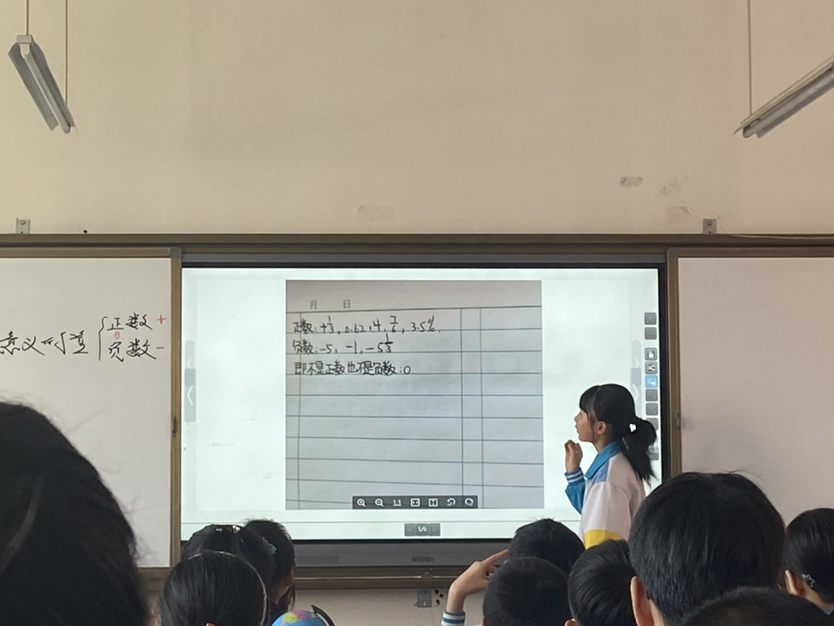 意义的量
正数 +
0
负数 -
月 日
正数:+1/3, 0.62, 4, 7/6, 3.5%,
负数:-5, -1, -5 1/3
即不是正数也不是负数:0
1/6